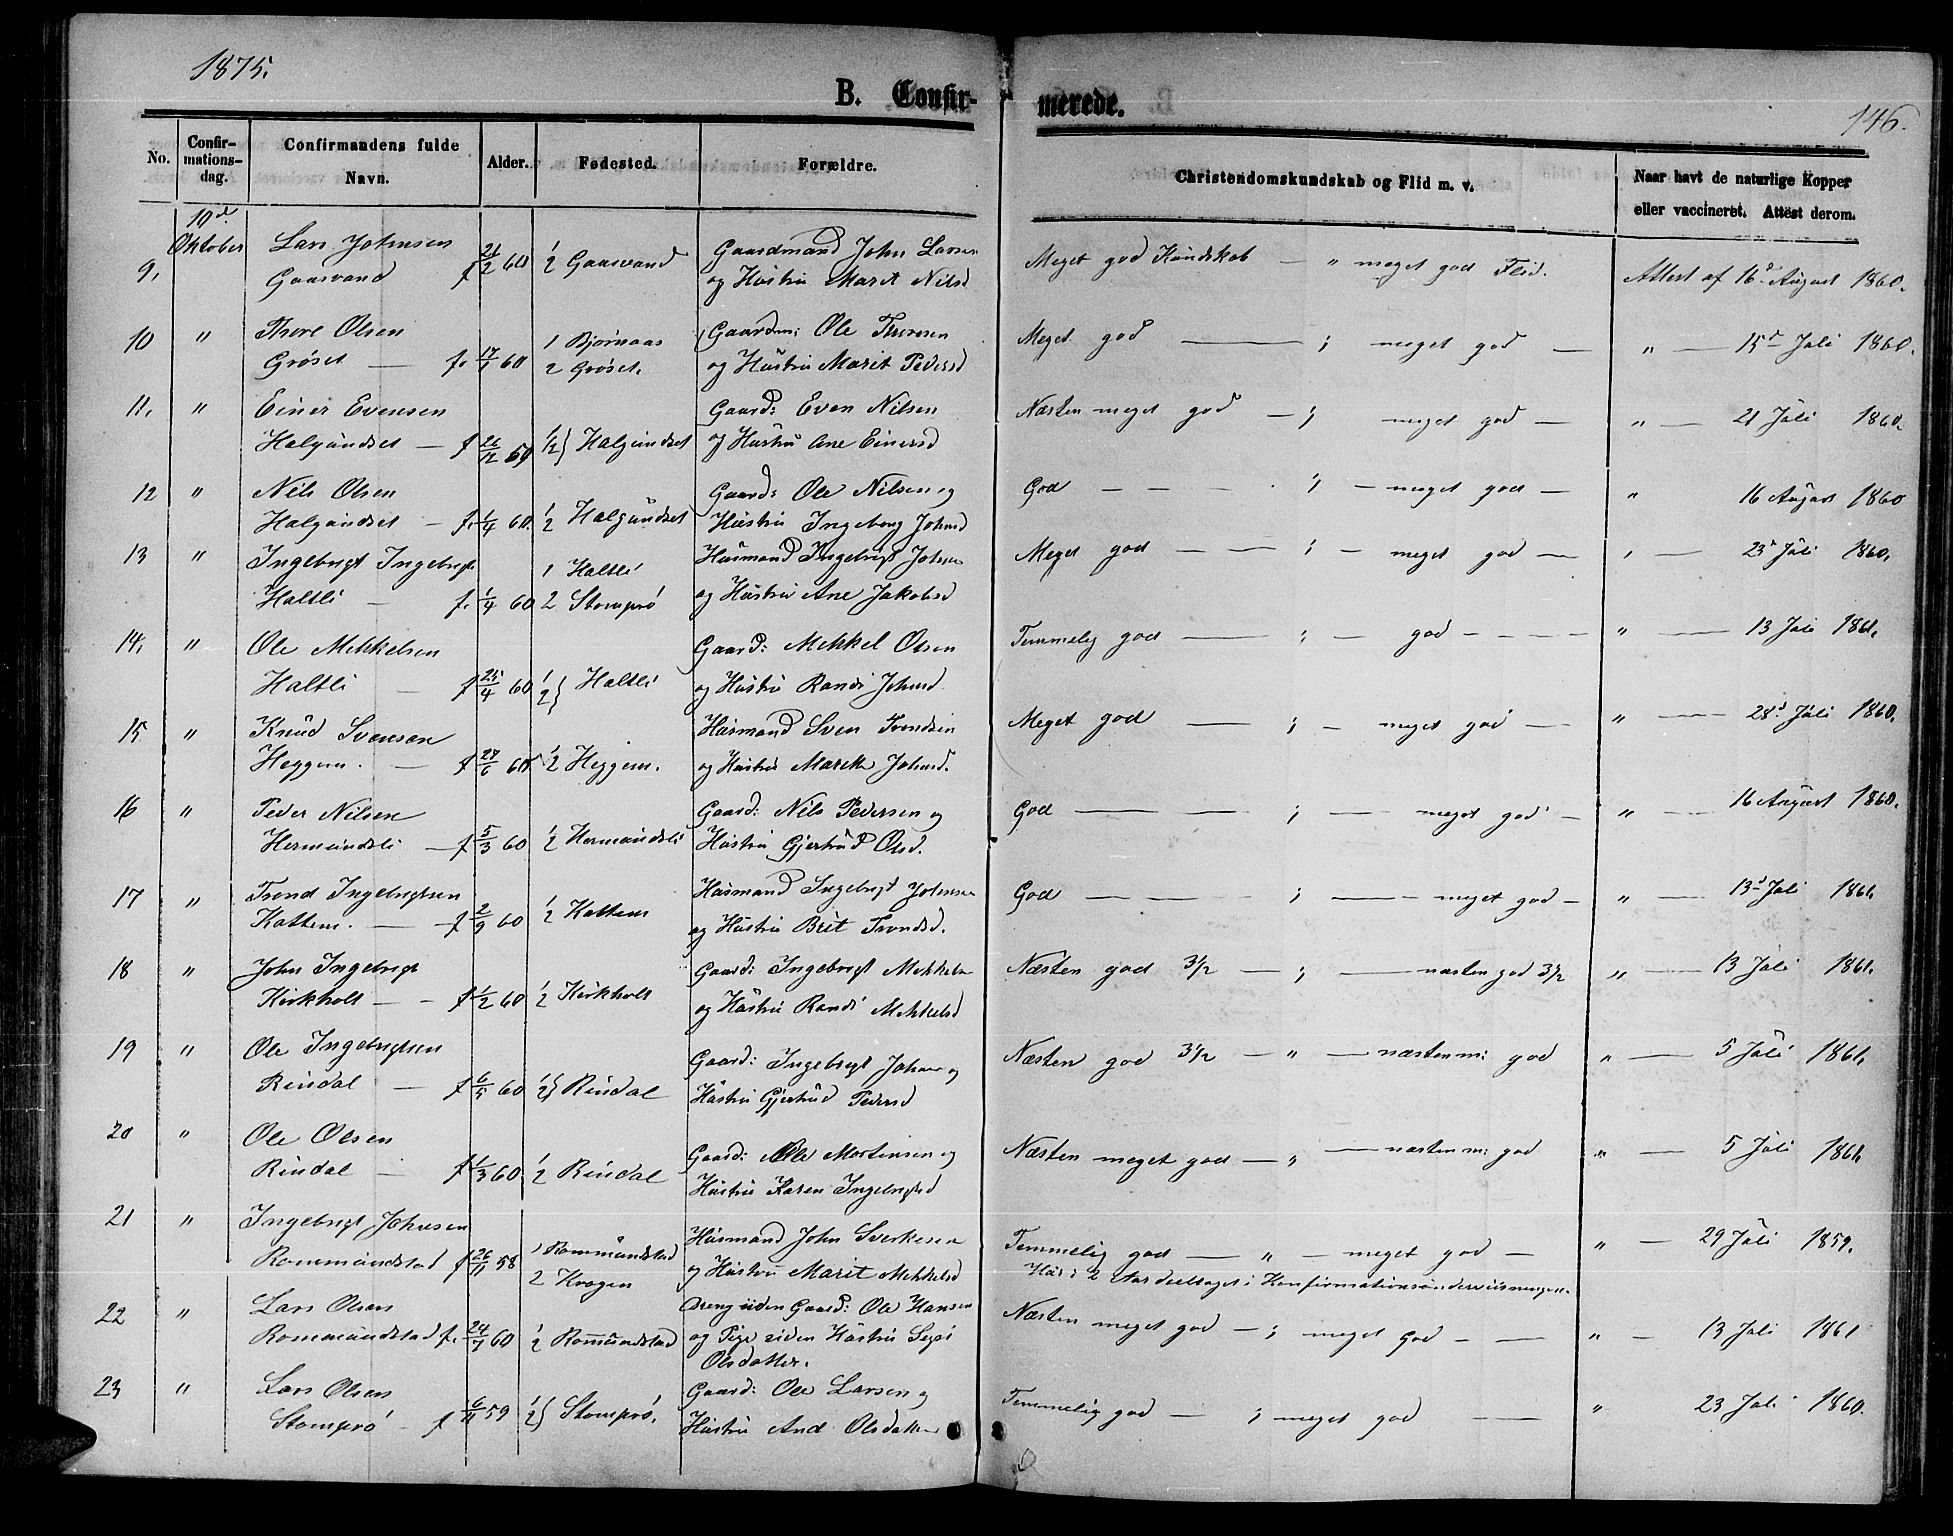 1875.
B. Confir-
merede.
146.
No.
Confir-
mations-
dag.
Confirmandens fulde
Navn.
Alder.
Fødested.
Forældre.
Christendomskundskab og Flid m. v.
Naar havt de naturlige Kopper
eller vaccineret. Attest derom.
10d.
9, Oktober Lars Johnsen f 21/2 60 1/2 Gaasvand Gaardmand John Larsen Meget god Kundskab — " meget god Flid. Attest af 16d August 1860.
Gaasvand og Hustru Marit Nilsd
10 " Thore Olsen 1 Bjørnaas Gaardm: Ole Thoresen Meget god — ; meget god — " — 15d Juli 1860.
Grøset — f. 17/1 60 2 Grøset. og Hustru Marit Pedersd
11, " Einer Evensen Gaard: Even Nilsen Næsten meget god — ; meget god — " — 21 Juli 1860.
Halgundset — f 26/12 59 1/2} Halgundset og Hustru Ane Einersd
12 " Nils Olsen Gaard: Ole Nilsen og God — — ; — meget god — " 16 August 1860
Halgundset — f. 1/4 60. 1/2 Halgundset Hustru Ingeborg Johnsd
13 " Ingebrigt Ingebrigts 1 Haltli Husmand Ingebrigt Johnsen Meget god — — ; — meget god — " — 23d Juli 1860.
Haltli — f. 1/4 60 2 Stomprø og Hustru Ane Jakobsd
14, " Ole Mekkelsen Gaard: Mekkel Olsen Temmelig god — ; — god - - - - " — 13 Juli 1861.
Haltli — f 25/4 60 1/2} Haltli og Hustru Randi Johnsd
15 " Knud Svensen Husmand Sven Trondsen Meget god — ; — meget god — " — 28d Juli 1860.
Heggem. — f 27/6 60 1/2 Heggem. og Hustru Marit Johnsd.
16 " Peder Nilsen Gaard: Nils Pedersen og God — ; — meget god — " — 16 August 1860.
Hermundsli — f 5/3 60 1/2 Hermundsli Hustru Gjertrud Olsd.
17 " Trond Ingebrigtsen Husmand Ingebrigt Johnsen God — ; — meget god — " — 13d Juli 1861.
Kattem. — f 2/9 60 1/2 Kattem og Hustru Brit Trondsd.
18 " John Ingebrigt Gaard: Ingebrigt Mekkelsen Næsten god 3 1/2 — ; — næsten god 3 1/2 " — 13 Juli 1861.
Kirkholt — - f 1/2 60 1/2 Kirkholt og Hustru Randi Mekkelsd
19 " Ole Ingebrigtsen Gaard: Ingebrigt Johnsen og Næsten god 3 1/2 — " — næsten m: god " — 5 Juli 1861.
Rindal — f 6/5 60 1/2} Rindal Hustru Gjertrud Pedersd
20 " Ole Olsen Gaard: Ole Mortensen og Næsten meget god — " — næsten m: god " — 5 Juli 1861.
Rindal — f 1/3 60. 1/2 Rindal Hustru Karen Ingebrigtsd
21 " Ingebrigt Johnsen 1 Rommundstad Husmand John Sverkesen Temmelig god — " — meget god — " — 29 Juli 1859.
Rommundstad f 26/11 58 2 Kvogen og Hustru Marit Mekkelsd Har i 2 Aar deeltaget i Konfirmationsundervisningen.
22 " Lars Olsen Dreng uden Gaard: Ole Hansen Næsten meget god — ; meget god - — " — 13 Juli 1861
Rommundstad f. 24/7 60 1/2 Rommundstad og Pige siden Hustru
Olsdatter.
23 " Lars Olsen Gaard: Ole Larsen og Temmelig god — ; meget god — " 23 Juli 1860.
Stomprø — f 6/11 59 1/2} Stomprø. Hustru Olsdatter